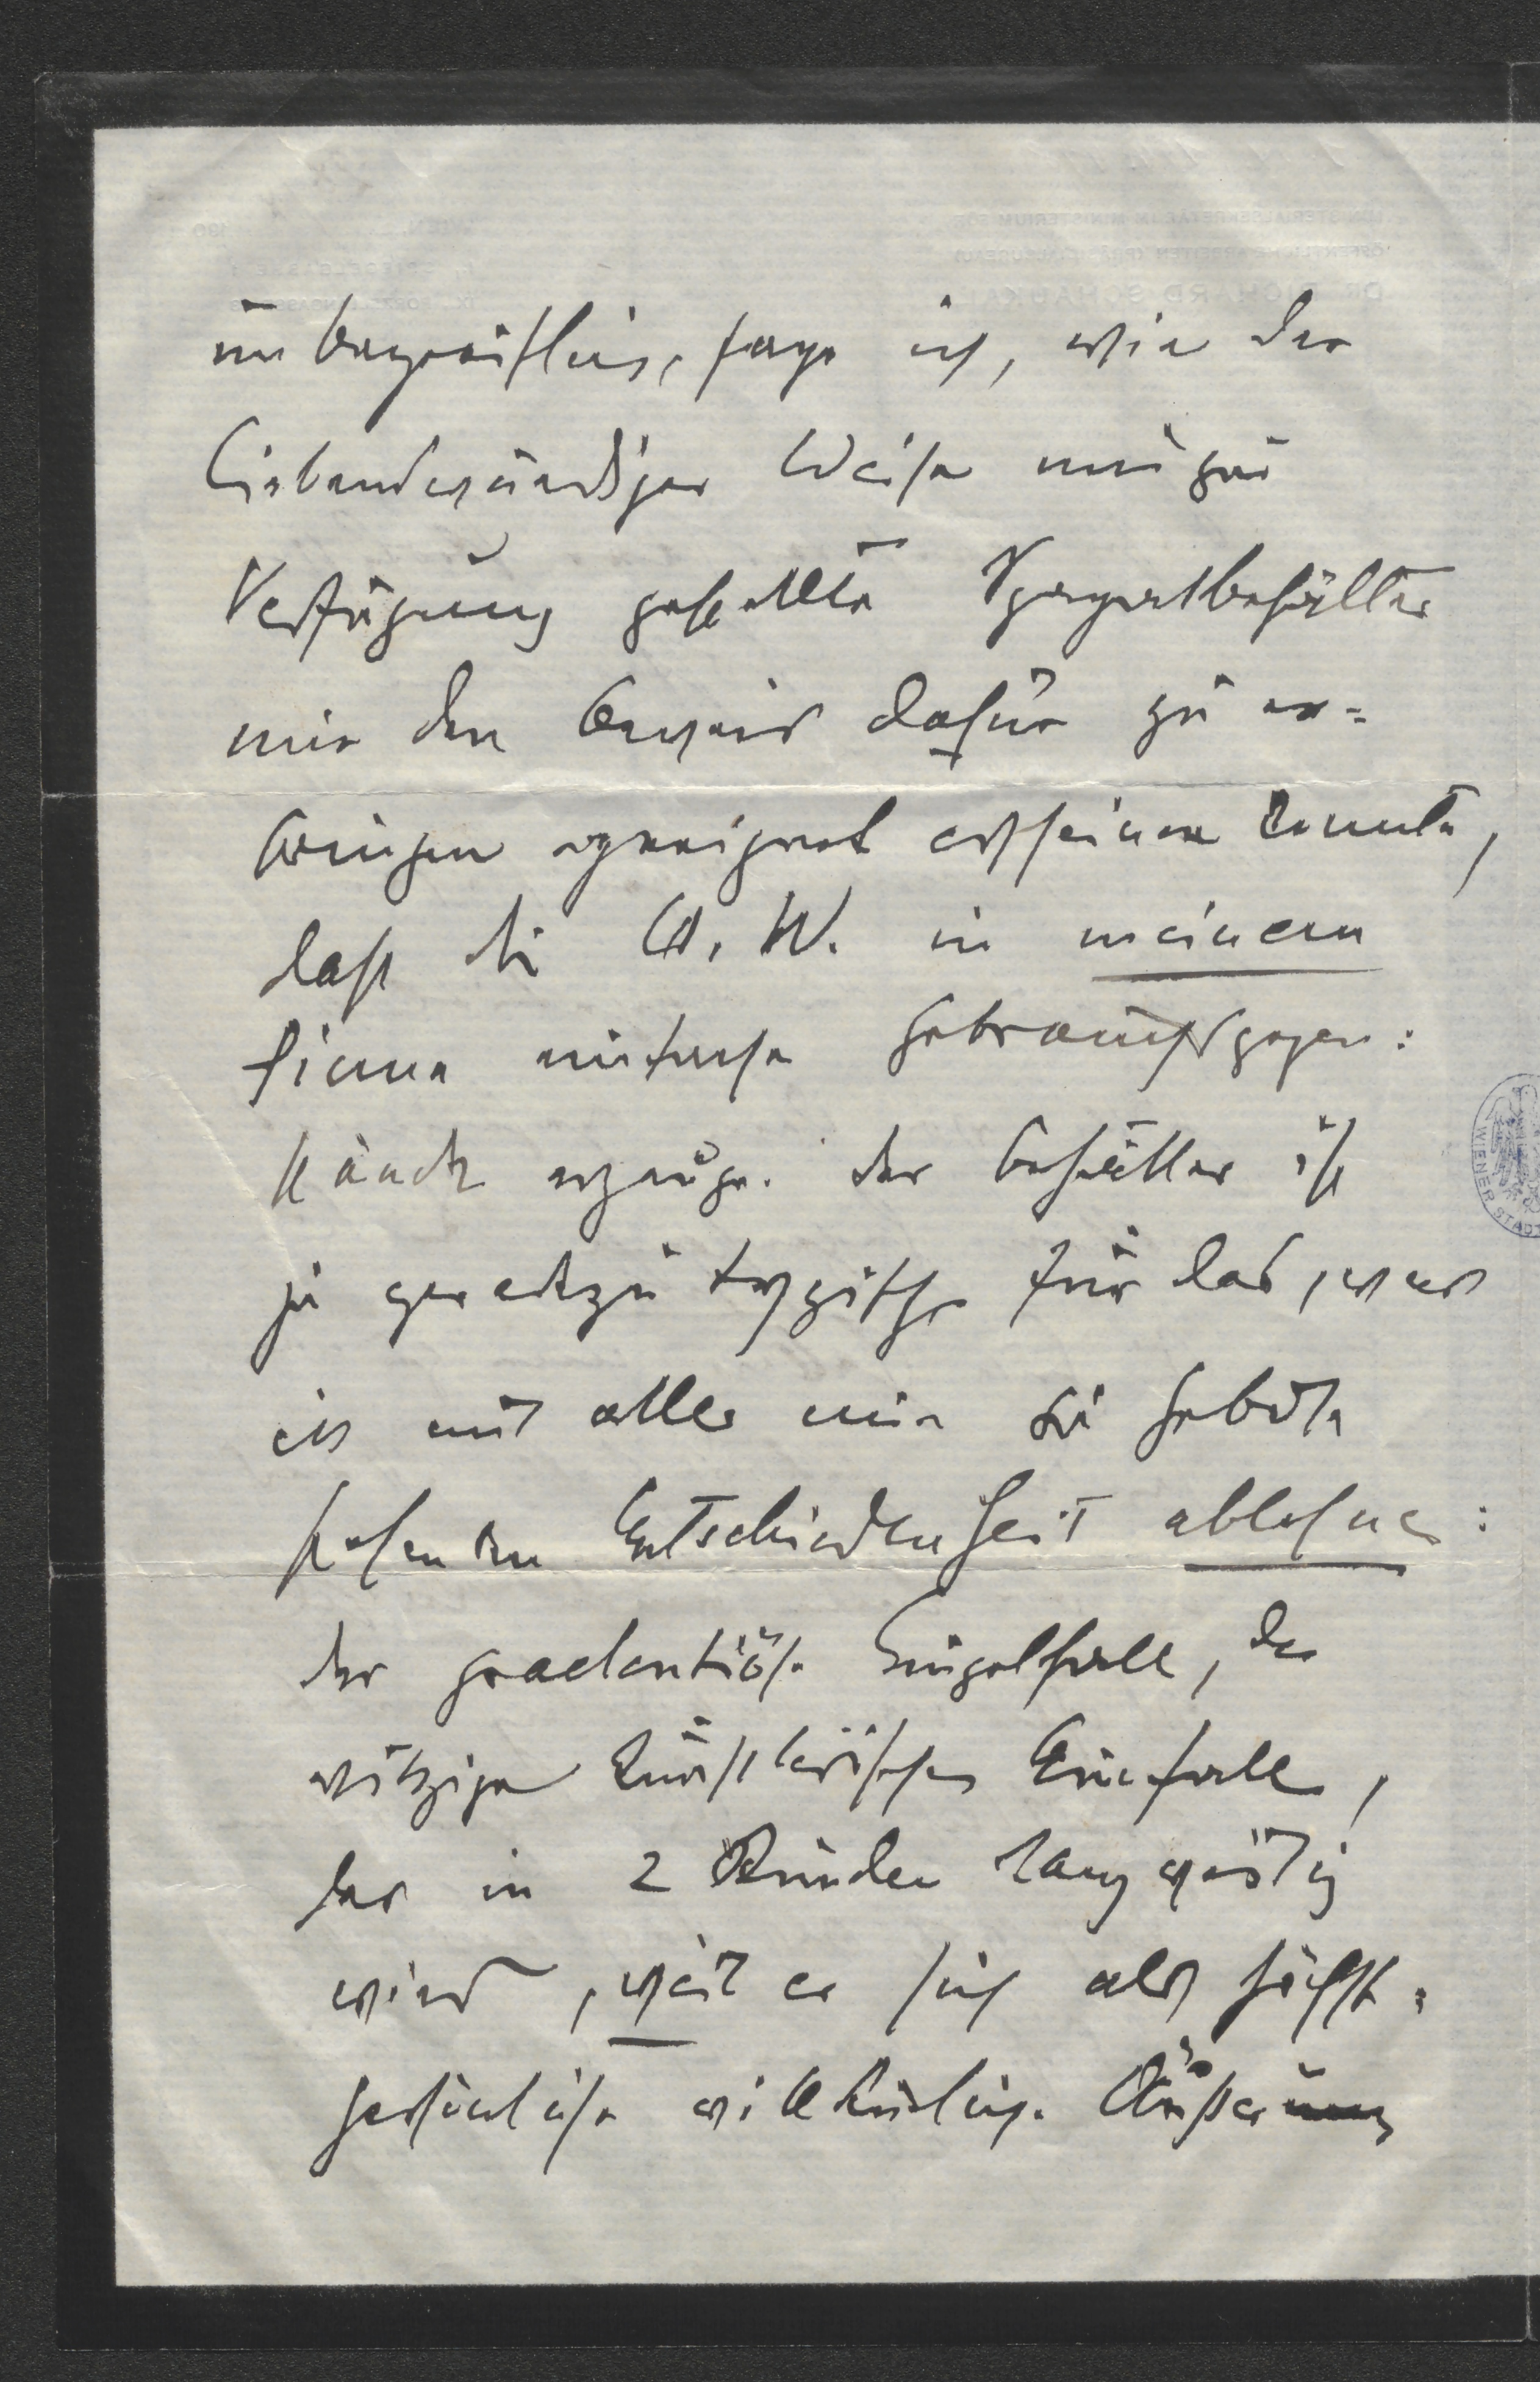 unbegreiflich, sage ich, wie der
liebenswürdiger Weise mir zur
Verfügung gestellte Spagatbehälter
mir den Beweis dafür zu er=
bringen geeignet erscheinen konnte,
dass die W. W. in meinem
Sinne nützliche Gebrauchsgegen:
stände erzeuge. Der Behälter ist
ja geradezu typisch für das, was
ich mit aller mir zu Gebote
stehenden Entschiedenheit ablehne:
der praetentiöse Einzelfall, der
witzige künstlerische Einfall,
der in 2 Stunden langweilig
wird, weil er sich als höchst=
persönliche willkürliche Äußerung
WIENER STADT